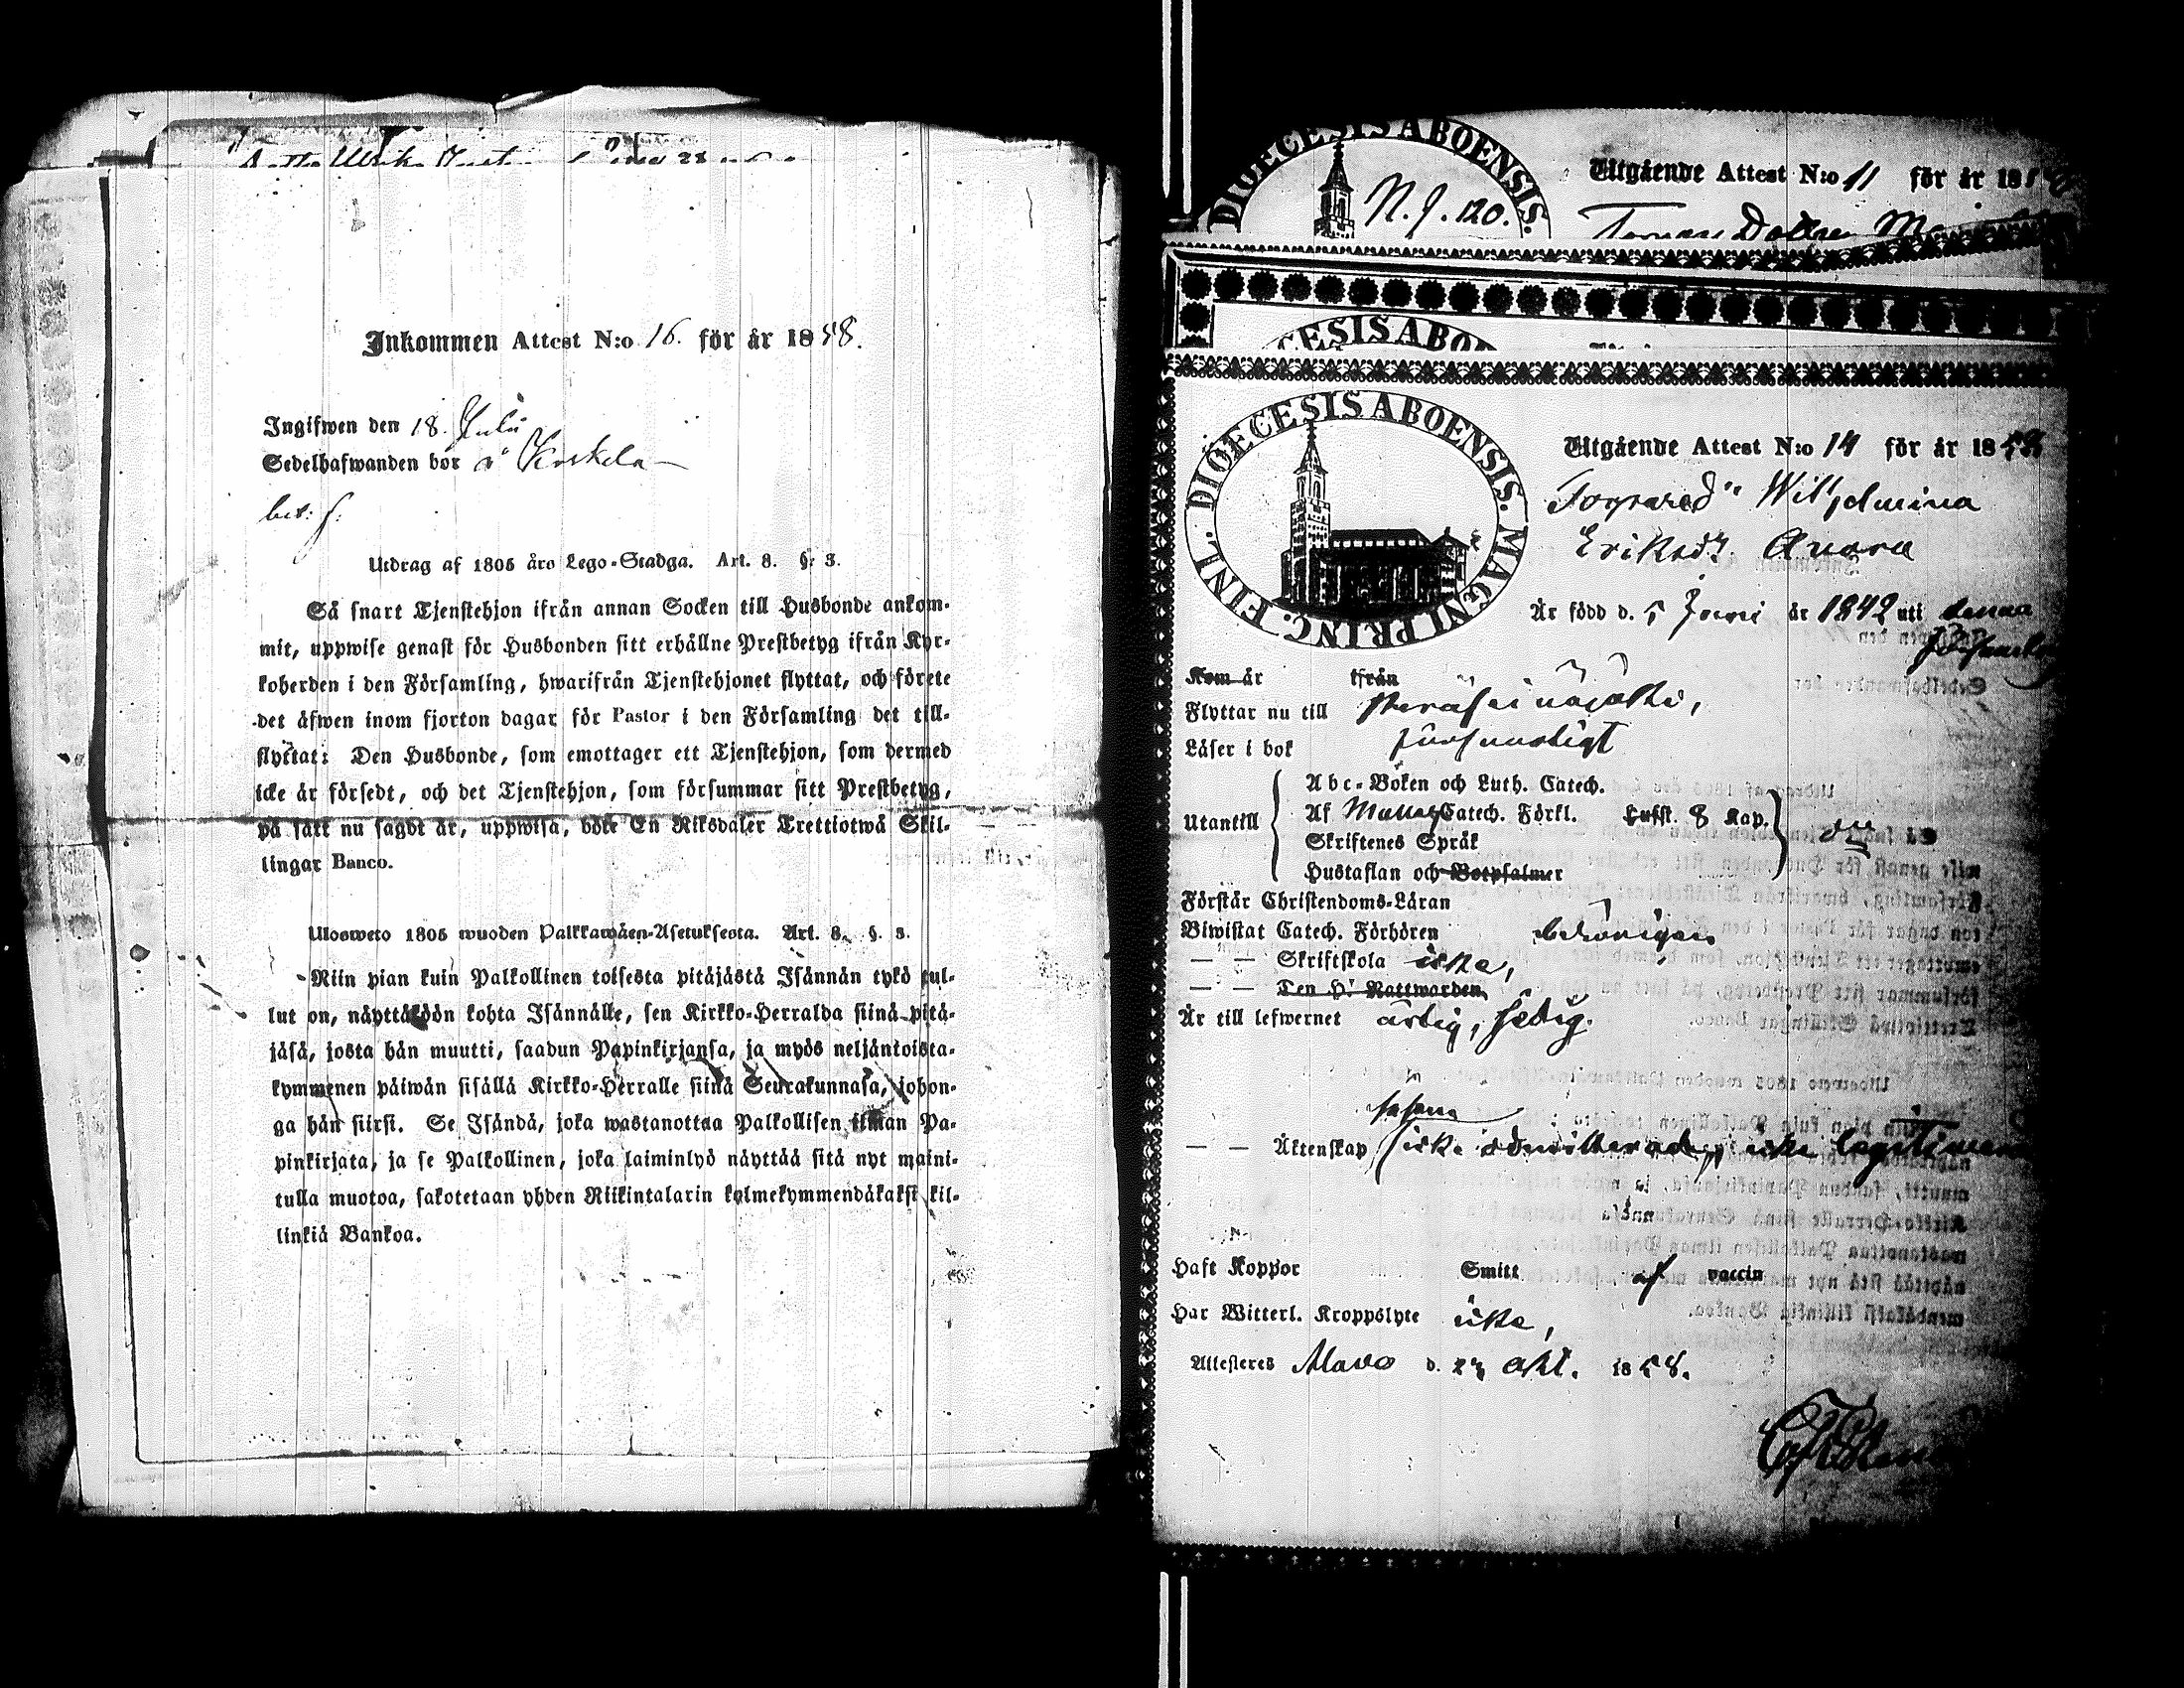 Inkommen Attest N:o 16. för år 1858.
Ingifwen den 18. Juli
Sedelhafwanden bor å Koskela
bet: f:
Utdrag af 1805 års Lego-Stadga. Art. 8. §. 3.
Så snart Tjenstehjon ifrån annan Socken till Husbonde ankom-
mit, uppwise genast för Husbonden sitt erhållne Prestbetyg ifrån Kyr-
koherden i den Församling, hwarifrån Tjenstehjonet flyttat, och förete
det äfwen inom fjorton dagar för Pastor i den Församling det till-
flyttat: Den Husbonde, som emottager ett Tjenstehjon, som dermed
icke är försedt, och det Tjenstehjon, som försummar sitt Prestbetyg,
på sätt nu sagdt är, uppwisa, böte En Riksdaler Trettiotwå Skil-
lingar Banco.
Ulosweto 1805 wuoden Palkkawäen-Asetuksesta. Art. 8. §. 3.
Niin pian kuin Palkollinen toisesta pitäjästä Isännän tykö tul-
lut on, näyttäköön kohta Isännälle, sen Kirkko-Herralda siinä pitä-
jäsä, josta hän muutti, saadun Papinkirjansa, ja myös neljäntoista-
kymmenen päiwän sisällä Kirkko-Herralle siinä Seurakunnasa, johon-
ga hän siirsi. Se Isändä, joka wastanottaa Palkollisen ilman Pa-
pinkirjata, ja se Palkollinen, joka laiminlyö näyttää sitä nyt maini-
tulla muotoa, sakotetaan yhden Riikintalarin kolmekymmendäkaksi kil-
linkiä Bankoa.
DIOECESIS ABOENSIS.
N. J. 120.
Utgående Attest N:o 11 för år 18
DIOECESIS ABOENSIS. MAGNI PRINC. FINL.
Utgående Attest N:o 14 för år 1858
Wilhelmina
Eriksdr.
Är född d. 5 Juni år 1842 uti denna
Församling
Kom år ifrån
Flyttar nu till
Läser i bok försvarligt
Abc-Boken och Luth. Catech.
Utantill Af Catech. Förkl. Lutst. 8 Kap.
Skriftenes Språk
Hustaflan och Botpsalmer
Förstår Christendoms-Läran
Biwistat Catech. Förhören behörigen
— — Skriftskola icke,
— — Den H. Nattwarden
Är till lefwernet ärlig, sedig.
— — Äktenskap icke admitterad, icke
Haft Koppor Smitt af vaccin
Har Witterl. Kroppslyte icke,
Attesteres Alavo d. okt. 1858.